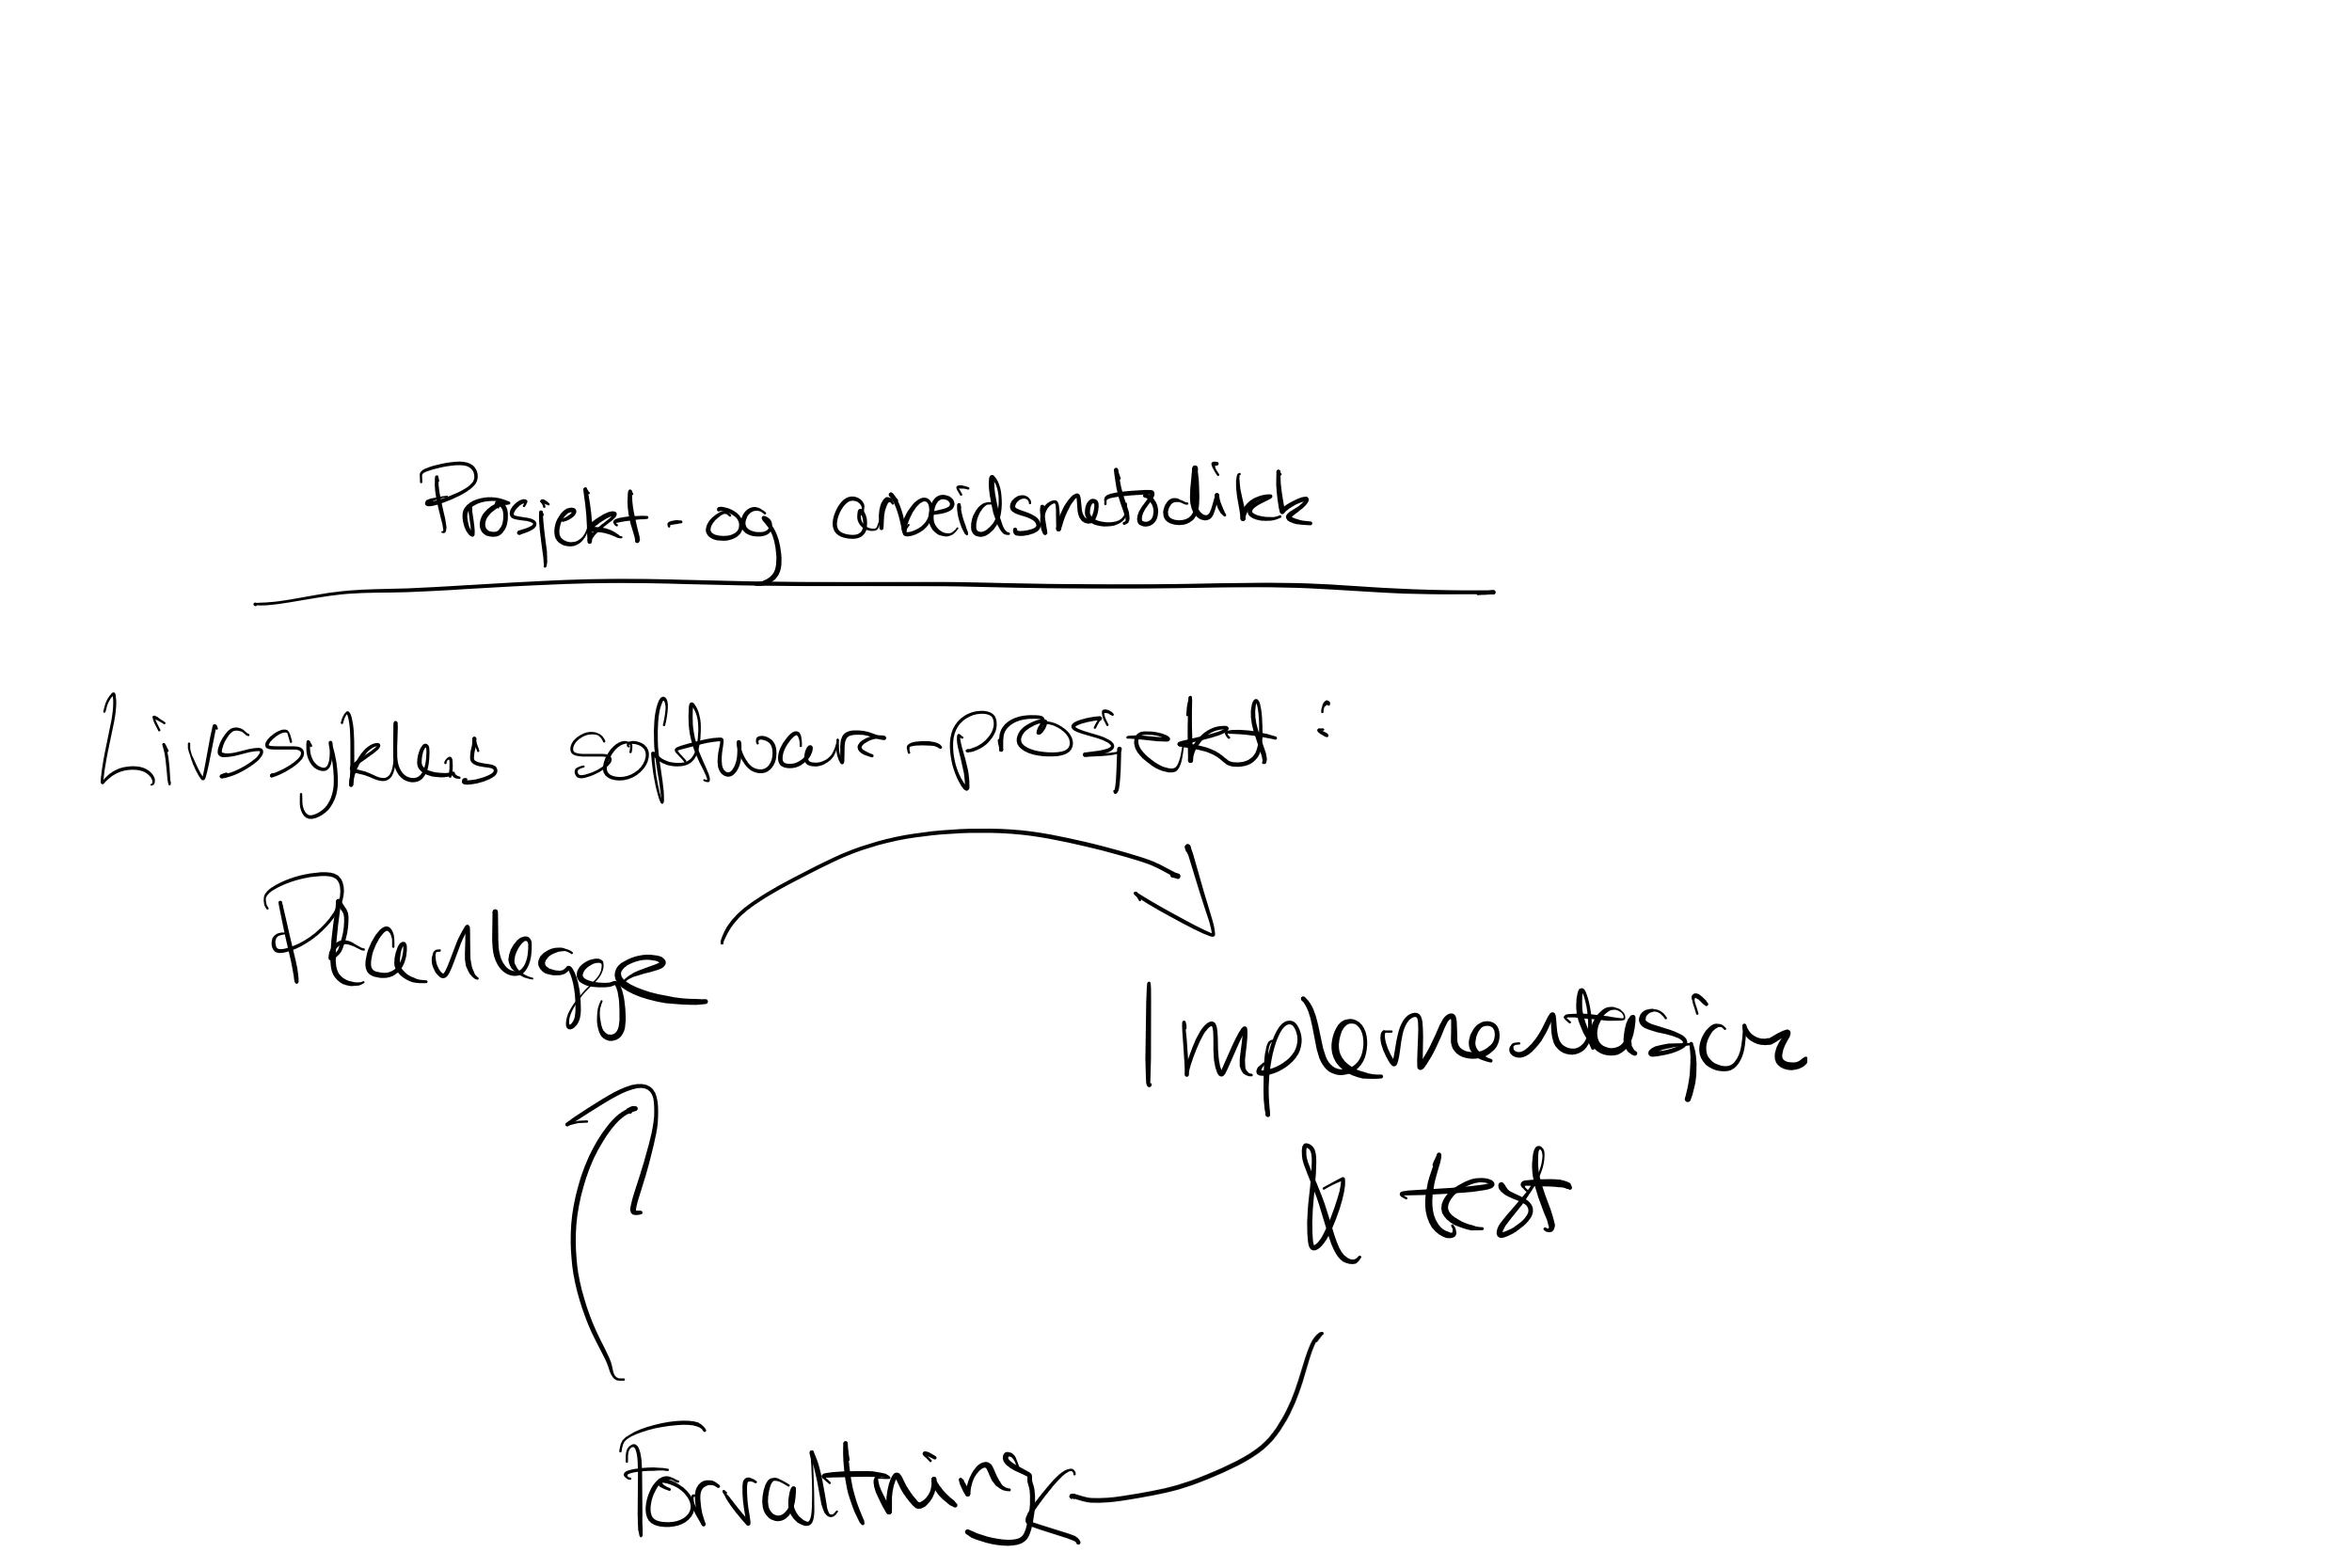 Prosjekt- og avvidsmetodikk
Livssyklus software-prosjekt :
Planlegge
Implementasjon
& test
Forvaltning